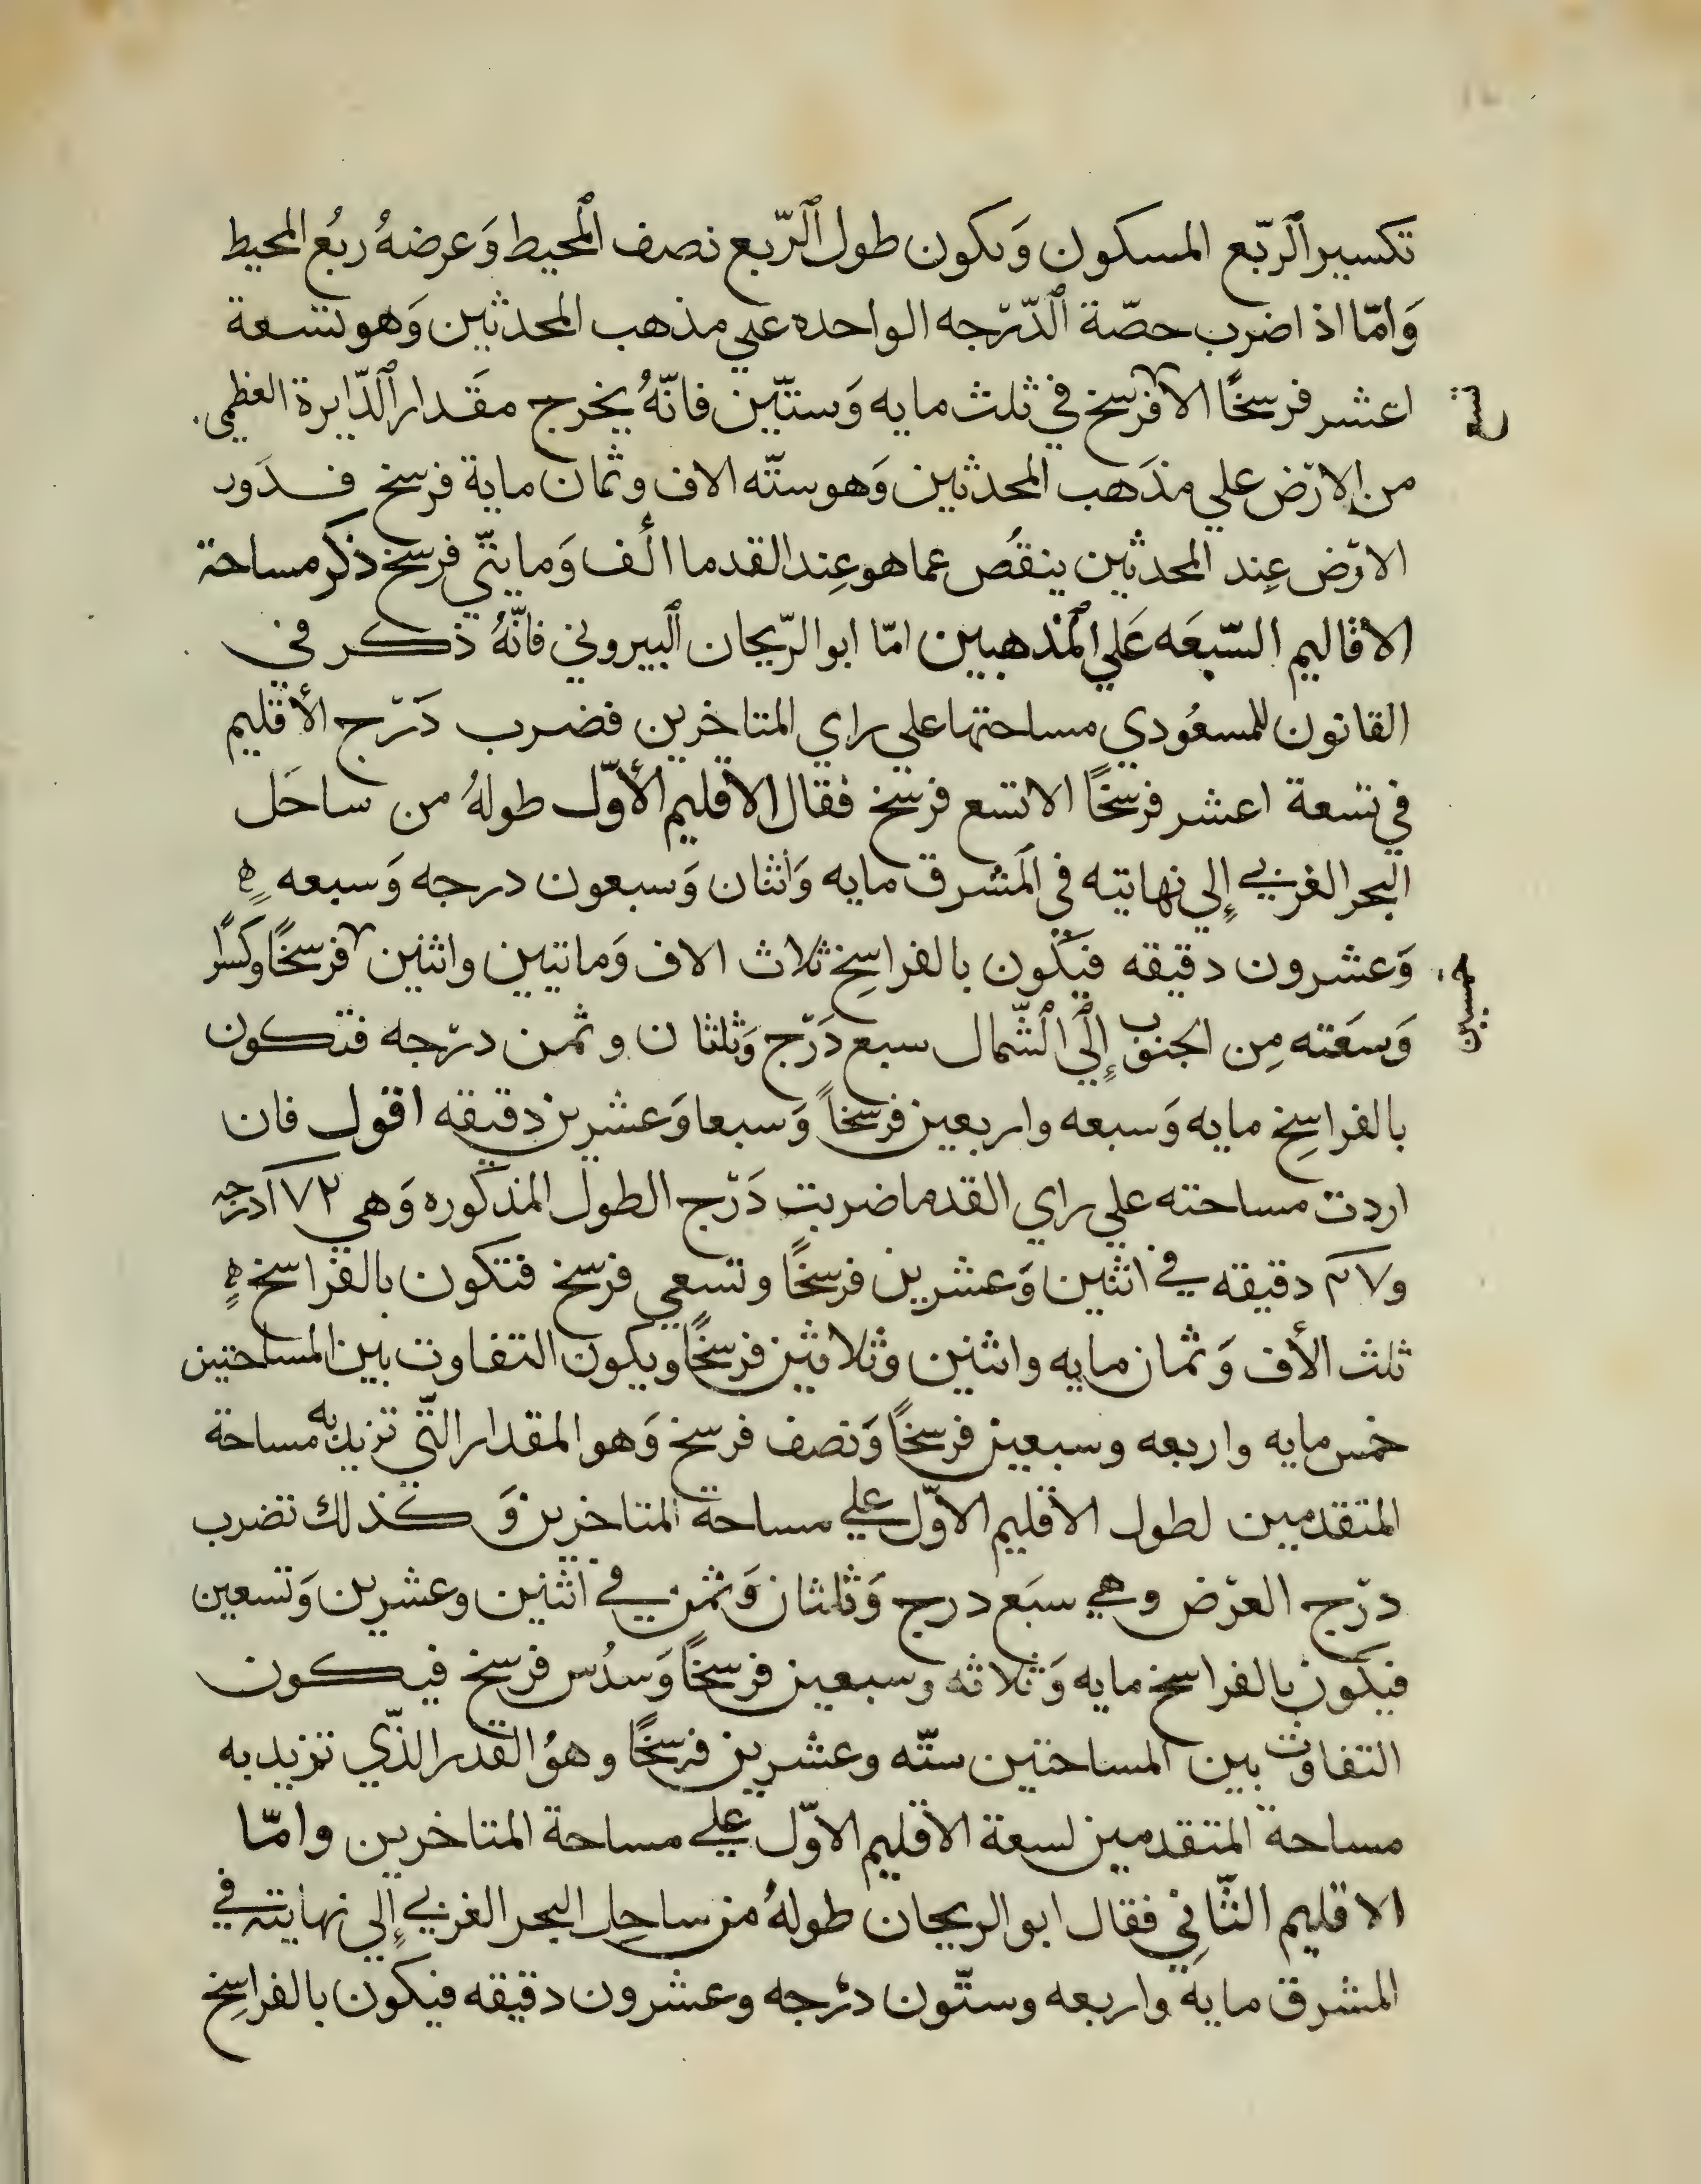 تكسير الرّبع المسكون وَيكون طول الرّبع نصف المحيط وَعرضهُ ربعُ المحيط
وَامّا اذ اضرب حصّة الدّرجه الواحده علي مذهب المحدثين وَهو تسعة
اعشر فرسخًا الا فرسخ في ثلث مايه وَستّين فانّهُ يخرج مقَدار الدّايرة العظمي
تسع
من الارض علي مذَهب المحدثين وَهو ستّه الاف وثمان ماية فرسخ فدَور
الارض عِند المحدثين ينقُص عما هو عِند القدما ألف وَمايتّي فرسخ ذكر مساحة
الأقاليم السّبعَه عَلي المذهبين امّا ابو الرّيحان البيروني فانّهُ ذكر في
القانون للمسعُودي مساحتها علي راي المتاخرين فضرب دَرَج الأقليم
في تسعة اعشر فرسخًا الا تسع فرسخ فقال الاقليم الأوّل طولهُ من ساحَل
البحر الغربي إلي نهايته في المَشرق مايه وَاثنان وَسبعون درجه وَسبعه
وَعشرون دقيقه فيكون بالفراسِخ ثلاث الاف وَماتيين واثنين فرسخًا وكسرًا
خمسين
وَسعَته مِن الجنوب إلَي الشّمال سبع دَرَج وَثلثان وثمن درّجه فتكون
بالفراسِخ مايه وَسبعه واربعين فرسخاً وَسبعا وَعشرين دقيقه اقول فان
اردت مساحته علي راي القدما ضربت دَرَج الطول المذكوره وَهي ١٧٢ درجه
و٢٧ دقيقه في اثنين وَعشرين فرسخًا وتسعي فرسخ فتكون بالفراسخ
ثلث الأف وَثمان مايه واثنين وثلاثين فرسخًا ويكون التفاوت بين المساحتين
خمس مايه واربعه وسبعين فرسخًا وَنصف فرسخ وَهو المقدار التّي تزيد به مساحة
المتقدمين لطول الاقليم الاوّل علي مساحة المتاخرين وَكذلك تضرب
درّج العرض وهي سبَع درج وَثلثان وَثمن في اثنين وعشرين وَتسعين
فيكون بالفراسخ مايه وَثلاثه وسبعين فرسخًا وَسدُس فرسخ فيكون
التفاوت بين المساحتين ستّه وعشرين فرسخًا وهوُ القدر الذّي تزيد به
مساحة المتقدمين لسعة الاقليم الاوّل علي مساحة المتاخرين وامّا
الاقليم الثّانِي فقال ابو الريحان طولهُ من ساحِل البحر الغربي إلي نهايته في
المشرق ماية واربعه وستّون درْجه وعشرون دقيقه فيكون بالفراسِخ